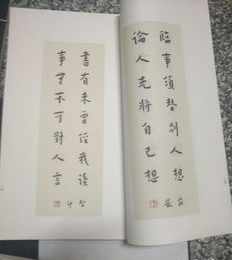 臨事須替別人想
論人先將自己想
書有未曾經我讀
事無不可對人言